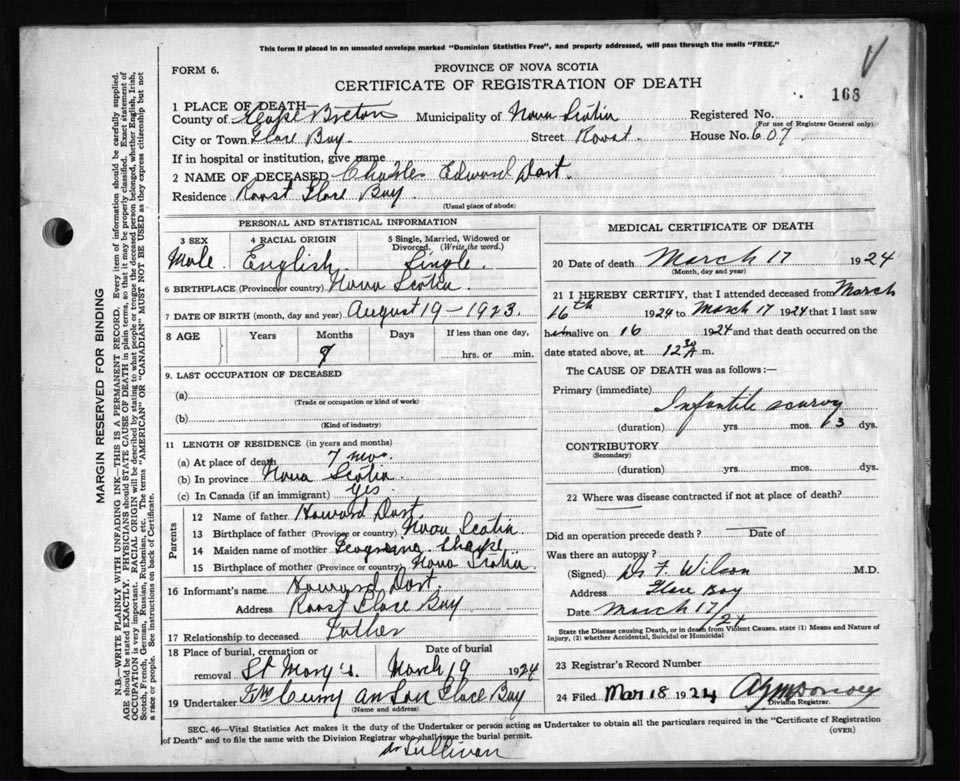 This form if placed in an unsealed envelope marked "Dominion Statistics Free", and properly addressed, will pass through the mails "FREE."
FORM 6.
PROVINCE OF NOVA SCOTIA
CERTIFICATE OF REGISTRATION OF DEATH
168
1 PLACE OF DEATH—
County of Cape Breton Municipality of Nova Scotia Registered No.
(For use of Registrar General only)
City or Town Glace Bay Street Roost House No. 607
If in hospital or institution, give name
2 NAME OF DECEASED Charles Edward Dort.
Residence Roost Glace Bay
(Usual place of abode)
PERSONAL AND STATISTICAL INFORMATION
3 SEX Male
4 RACIAL ORIGIN English
5 Single, Married, Widowed or Divorced. (Write the word.) Single.
6 BIRTHPLACE (Province or country) Nova Scotia
7 DATE OF BIRTH (month, day and year) August 19 - 1923.
8 AGE Years Months Days If less than one day,
7 hrs. or min.
9. LAST OCCUPATION OF DECEASED
(a)
(Trade or occupation or kind of work)
(b)
(Kind of industry)
11 LENGTH OF RESIDENCE (in years and months)
(a) At place of death 7 mos.
(b) In province Nova Scotia.
(c) In Canada (if an immigrant) yes
Parents
12 Name of father Howard Dort.
13 Birthplace of father (Province or country) Nova Scotia
14 Maiden name of mother
15 Birthplace of mother (Province or country) Nova Scotia.
16 Informant's name Howard Dort.
Address Roost Glace Bay
17 Relationship to deceased Father
18 Place of burial, cremation or removal St Mary's. Date of burial March 19 1924
19 Undertaker Curry an Son Glace Bay
(Name and address)
MEDICAL CERTIFICATE OF DEATH
20 Date of death March 17 1924
(Month, day and year)
21 I HEREBY CERTIFY, that I attended deceased from March
16th 1924 to March 17 1924 that I last saw
him alive on 16 1924 and that death occurred on
date stated above, at 12 30 A m.
The CAUSE OF DEATH was as follows:—
Primary (immediate) Infantile scurvy
(duration) yrs. mos. 3 dys.
CONTRIBUTORY
(Secondary)
(duration) yrs. mos. dys.
22 Where was disease contracted if not at place of death?
Did an operation precede death? Date of
Was there an autopsy?
(Signed) Dr F. Wilson M.D.
Address Glace Bay
Date March 17/24
State the Disease causing Death, or in death from Violent Causes. state (1) Means and Nature of Injury, (2) whether Accidental, Suicidal or Homicidal
23 Registrar's Record Number
24 Filed Mar 18 1924
Division Registrar.
SEC. 46—Vital Statistics Act makes it the duty of the Undertaker or person acting as Undertaker to obtain all the particulars required in the "Certificate of Registration
of Death" and to file the same with the Division Registrar who shall issue the burial permit.
(OVER)
dr Sullivan
MARGIN RESERVED FOR BINDING
N.B—WRITE PLAINLY WITH UNFADING INK—THIS IS A PERMANENT RECORD. Every item of information should be carefully supplied.
AGE should be stated EXACTLY. PHYSICIANS should STATE CAUSE OF DEATH in plain terms, so that it may be properly classified. Exact statement of
OCCUPATION is very important. RACIAL ORIGIN will be described by stating to what people or tongue the deceased person belonged, whether English, Irish,
Scotch, French, German, Russian, Ruthenian, etc. The terms "AMERICAN" OR "CANADIAN" MUST NOT BE USED as they express citizenship but not
a race or people. See instructions on back of Certificate.